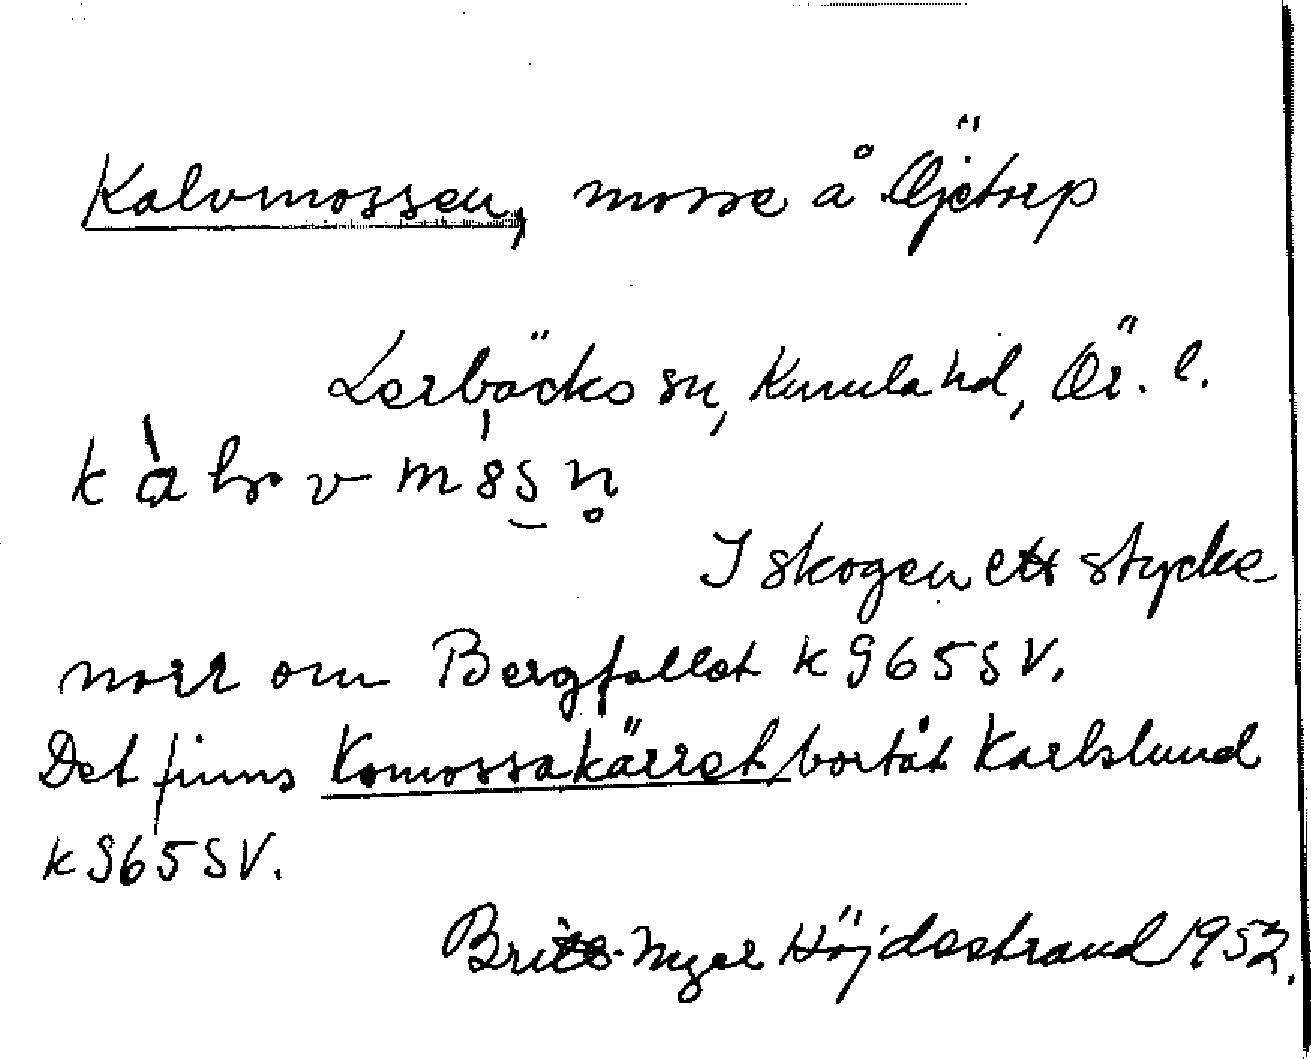 Kalvmossen, mosse å Öjetorp
Lerbäcks sn, Kumla hd, Ör. l.
I skogen ett stycke
norr om Bergfallet k S65SV.
Det finns Komossakärret bortåt Karlslund
k S65SV.
Britt-Inger Höjdestrand 1952.